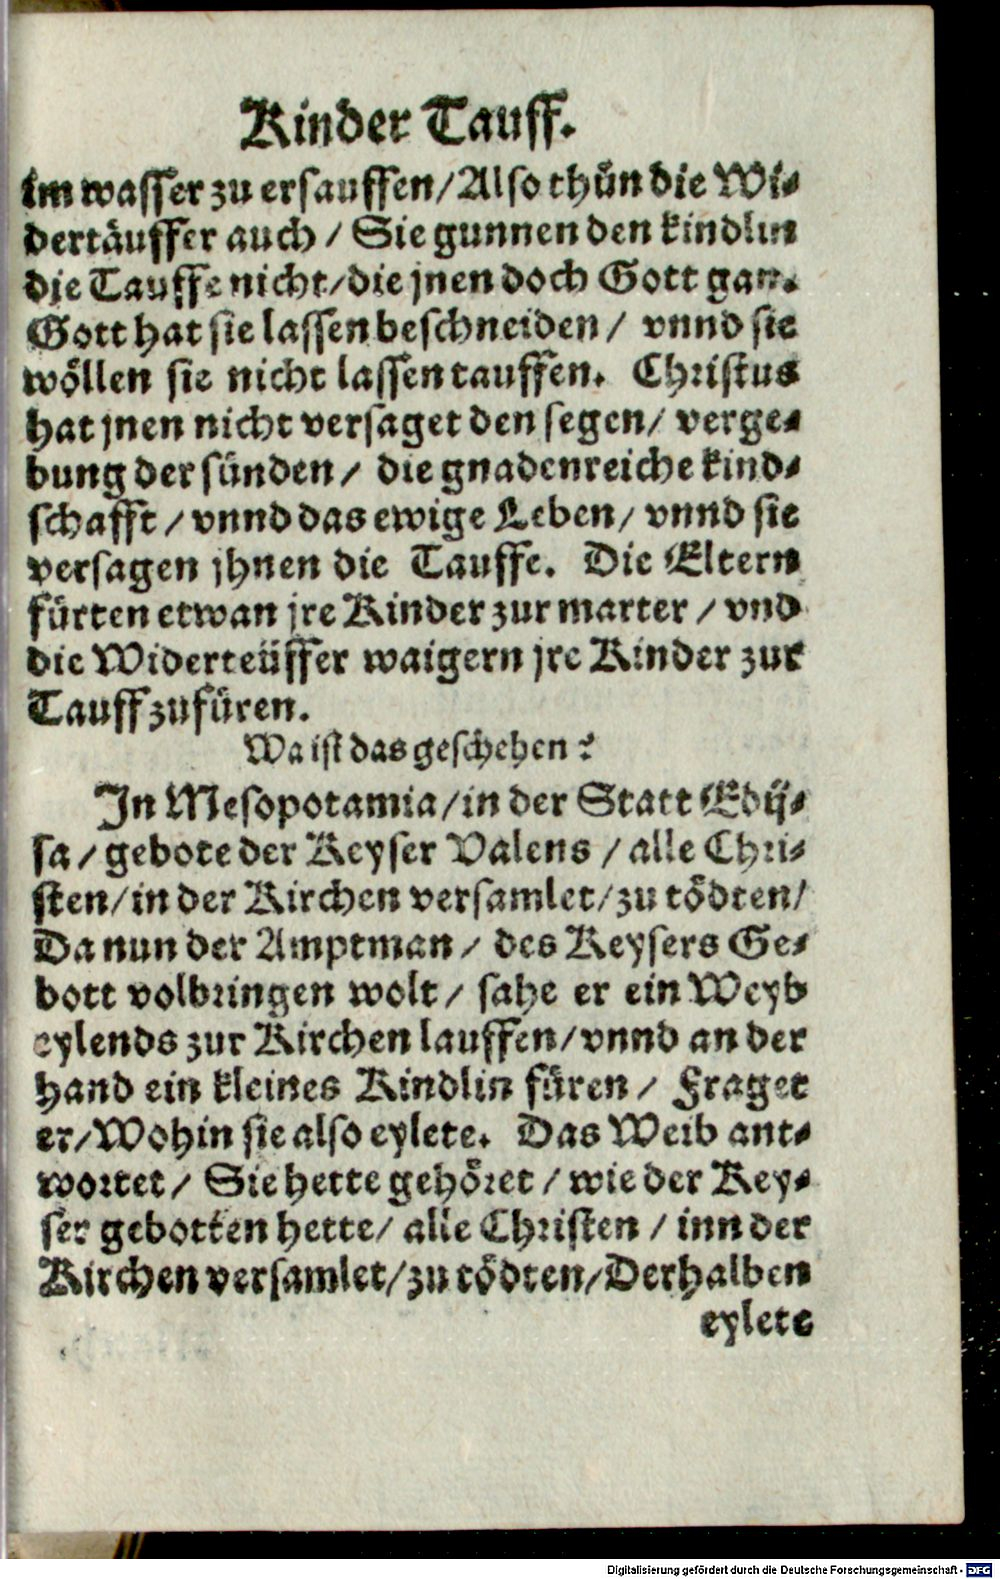 Kinder Tauff.
im wasser zu ersauffen/Also thůn die Wi-
dertäuffer auch / Sie gunnen den kindlin
die Tauffe nicht/die jnen doch Gott gan.
Gott hat sie lassen beschneiden / vnnd sie
wöllen sie nicht lassen tauffen. Christus
hat jnen nicht versaget den segen/ verge-
bung der sünden / die gnadenreiche kind-
schafft / vnnd das ewige Leben / vnnd sie
versagen jhnen die Tauffe. Die Eltern
fürten etwan jre Kinder zur marter / vnd
die Widerteüffer waigern jre Kinder zur
Tauff zufüren.
Wa ist das geschehen?
In Mesopotamia/in der Statt Edis-
sa / gebote der Keyser Valens / alle Chri-
sten/in der Kirchen versamlet/zu tödten/
Da nun der Amptman / des Keysers Ge-
bott volbringen wolt / sahe er ein Weyb
eylends zur Kirchen lauffen/vnnd an der
hand ein kleines Kindlin füren / Fraget
er/Wohin sie also eylete. Das Weib ant-
wortet / Sie hette gehöret / wie der Key-
ser gebotten hette/ alle Christen / inn der
Kirchen versamlet/zu tödten/Derhalben
eylete
Digitalisierung gefördert durch die Deutsche Forschungsgemeinschaft - DFG